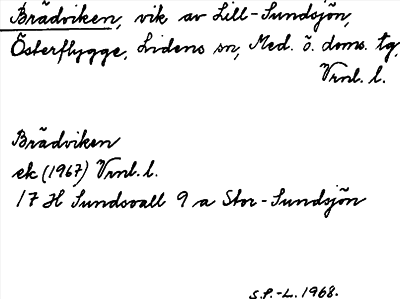 Brädviken, vik av Lill-Sundsjön,
Österflygge, Lidens sn, Med. ö. doms. tg,
Vrnl. l.
Brädviken
ek (1967) Vrnl. l.
17 H Sundsvall 9 a Stor-Sundsjön
S.P.-L. 1968.